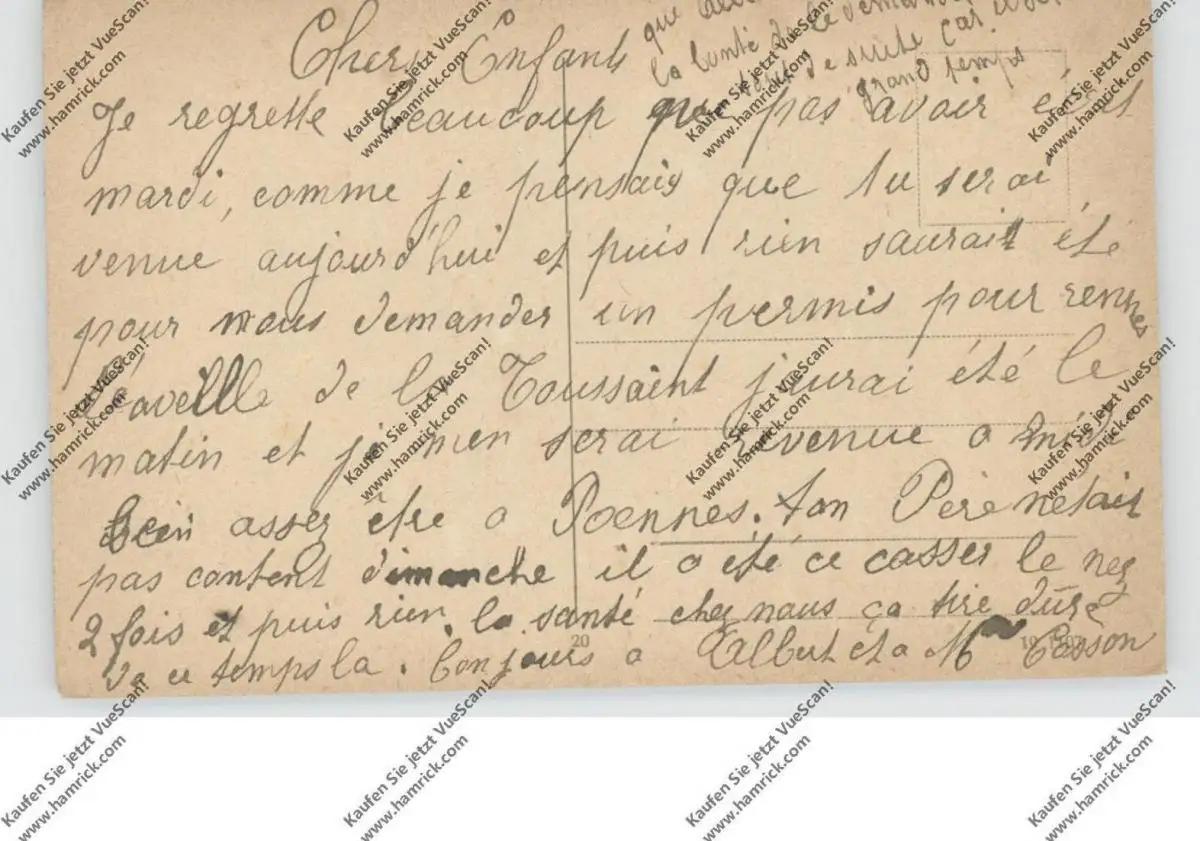 Chers Enfants
que
la bonté de le demander
de suite car
grand temps
Je regrette beaucoup que pas avoir écrit
mardi, comme je pensais que tu serai
venue aujourd'hui et puis rien saurait été
pour nous demander un permis pour rennes
de la Toussaint j'aurai été le
matin et je men serai revenue a midi
assez être a Roennes. ton Père netait
pas content dimanche il a été ce casser le nez
2 fois et puis rien. la santé chez nous ça tire dure
de ce temps la. bonjours a Albert et a Mme Casson
20
Kaufen Sie jetzt VueScan!
www.hamrick.com